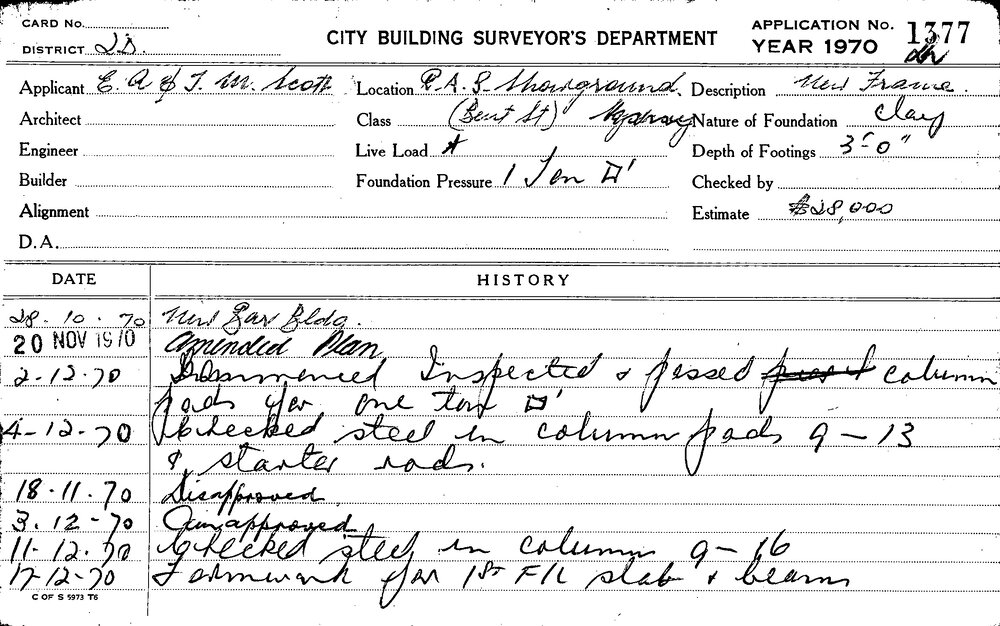 CARD No.
DISTRICT 2D.
CITY BUILDING SURVEYOR'S DEPARTMENT
APPLICATION No. 1377
YEAR 1970
Applicant E. A & T. M. Scott Location R.A.S Showground. Description New Frame.
Architect Class (Bent St) Nature of Foundation Clay
Engineer Live Load Depth of Footings 3'-0"
Builder Foundation Pressure 1 Ton □' Checked by
Alignment Estimate $28,000
D.A.
DATE HISTORY
28.10.70 New Bar Bldg.
20 NOV 1970 Amended Plan
2-12-70 Commenced Inspected & passed column
pads for one ton □'
4-12-70 Checked steel in column pads 9-13
& starter rods.
18.11.70 Disapproved
3.12-70 approved
11-12.70 Checked steel in column 9-16
17-12-70 Formwork for 1st FlR slab & beams
C OF S 5973 T6